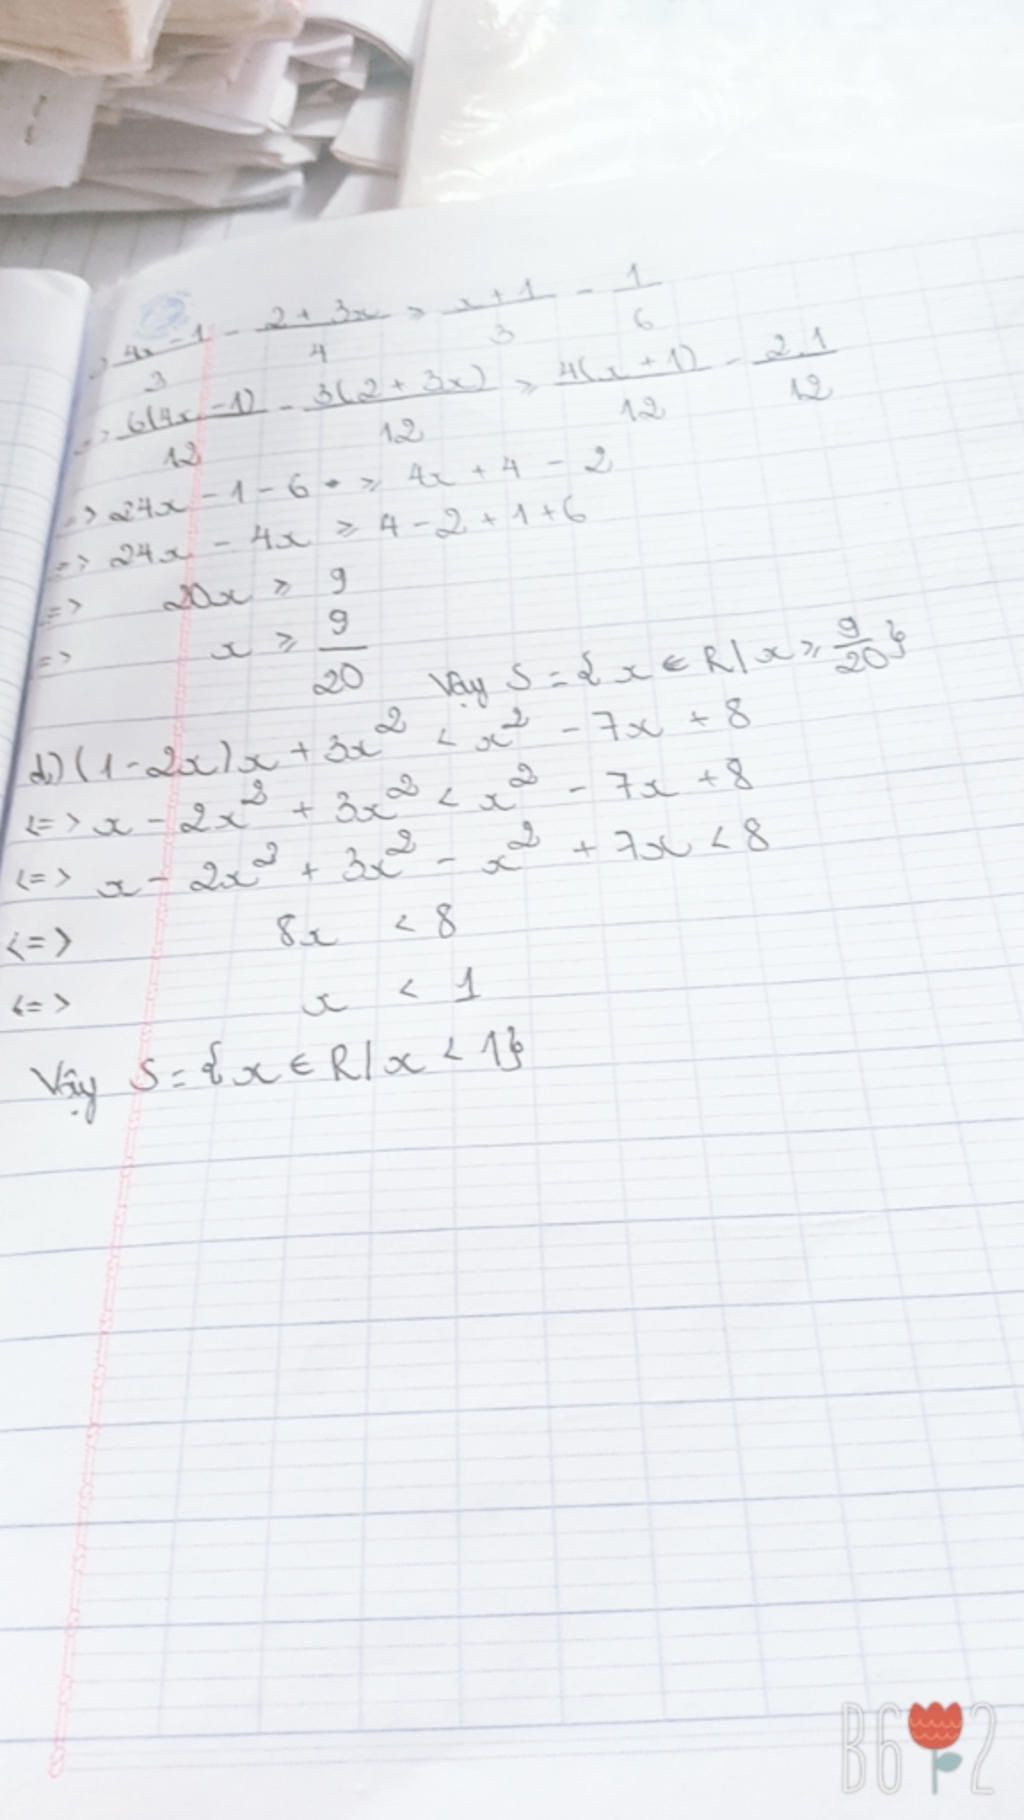 => 4x - 1/3 - 2 + 3x/4 ≥ x + 1/3 - 1/6
=> 6(4x - 1)/12 - 3(2 + 3x)/12 ≥ 4(x + 1)/12 - 2.1/12
=> 24x - 1 - 6 ≥ 4x + 4 - 2
=> 24x - 4x ≥ 4 - 2 + 1 + 6
=> 20x ≥ 9
=> x ≥ 9/20 Vậy S = { x ∈ R / x ≥ 9/20 }
d) (1 - 2x) x + 3x² < x² - 7x + 8
<=> x - 2x² + 3x² < x² - 7x + 8
<=> x - 2x² + 3x² - x² + 7x < 8
<=> 8x < 8
<=> x < 1
Vậy S = { x ∈ R / x < 1 }
B612